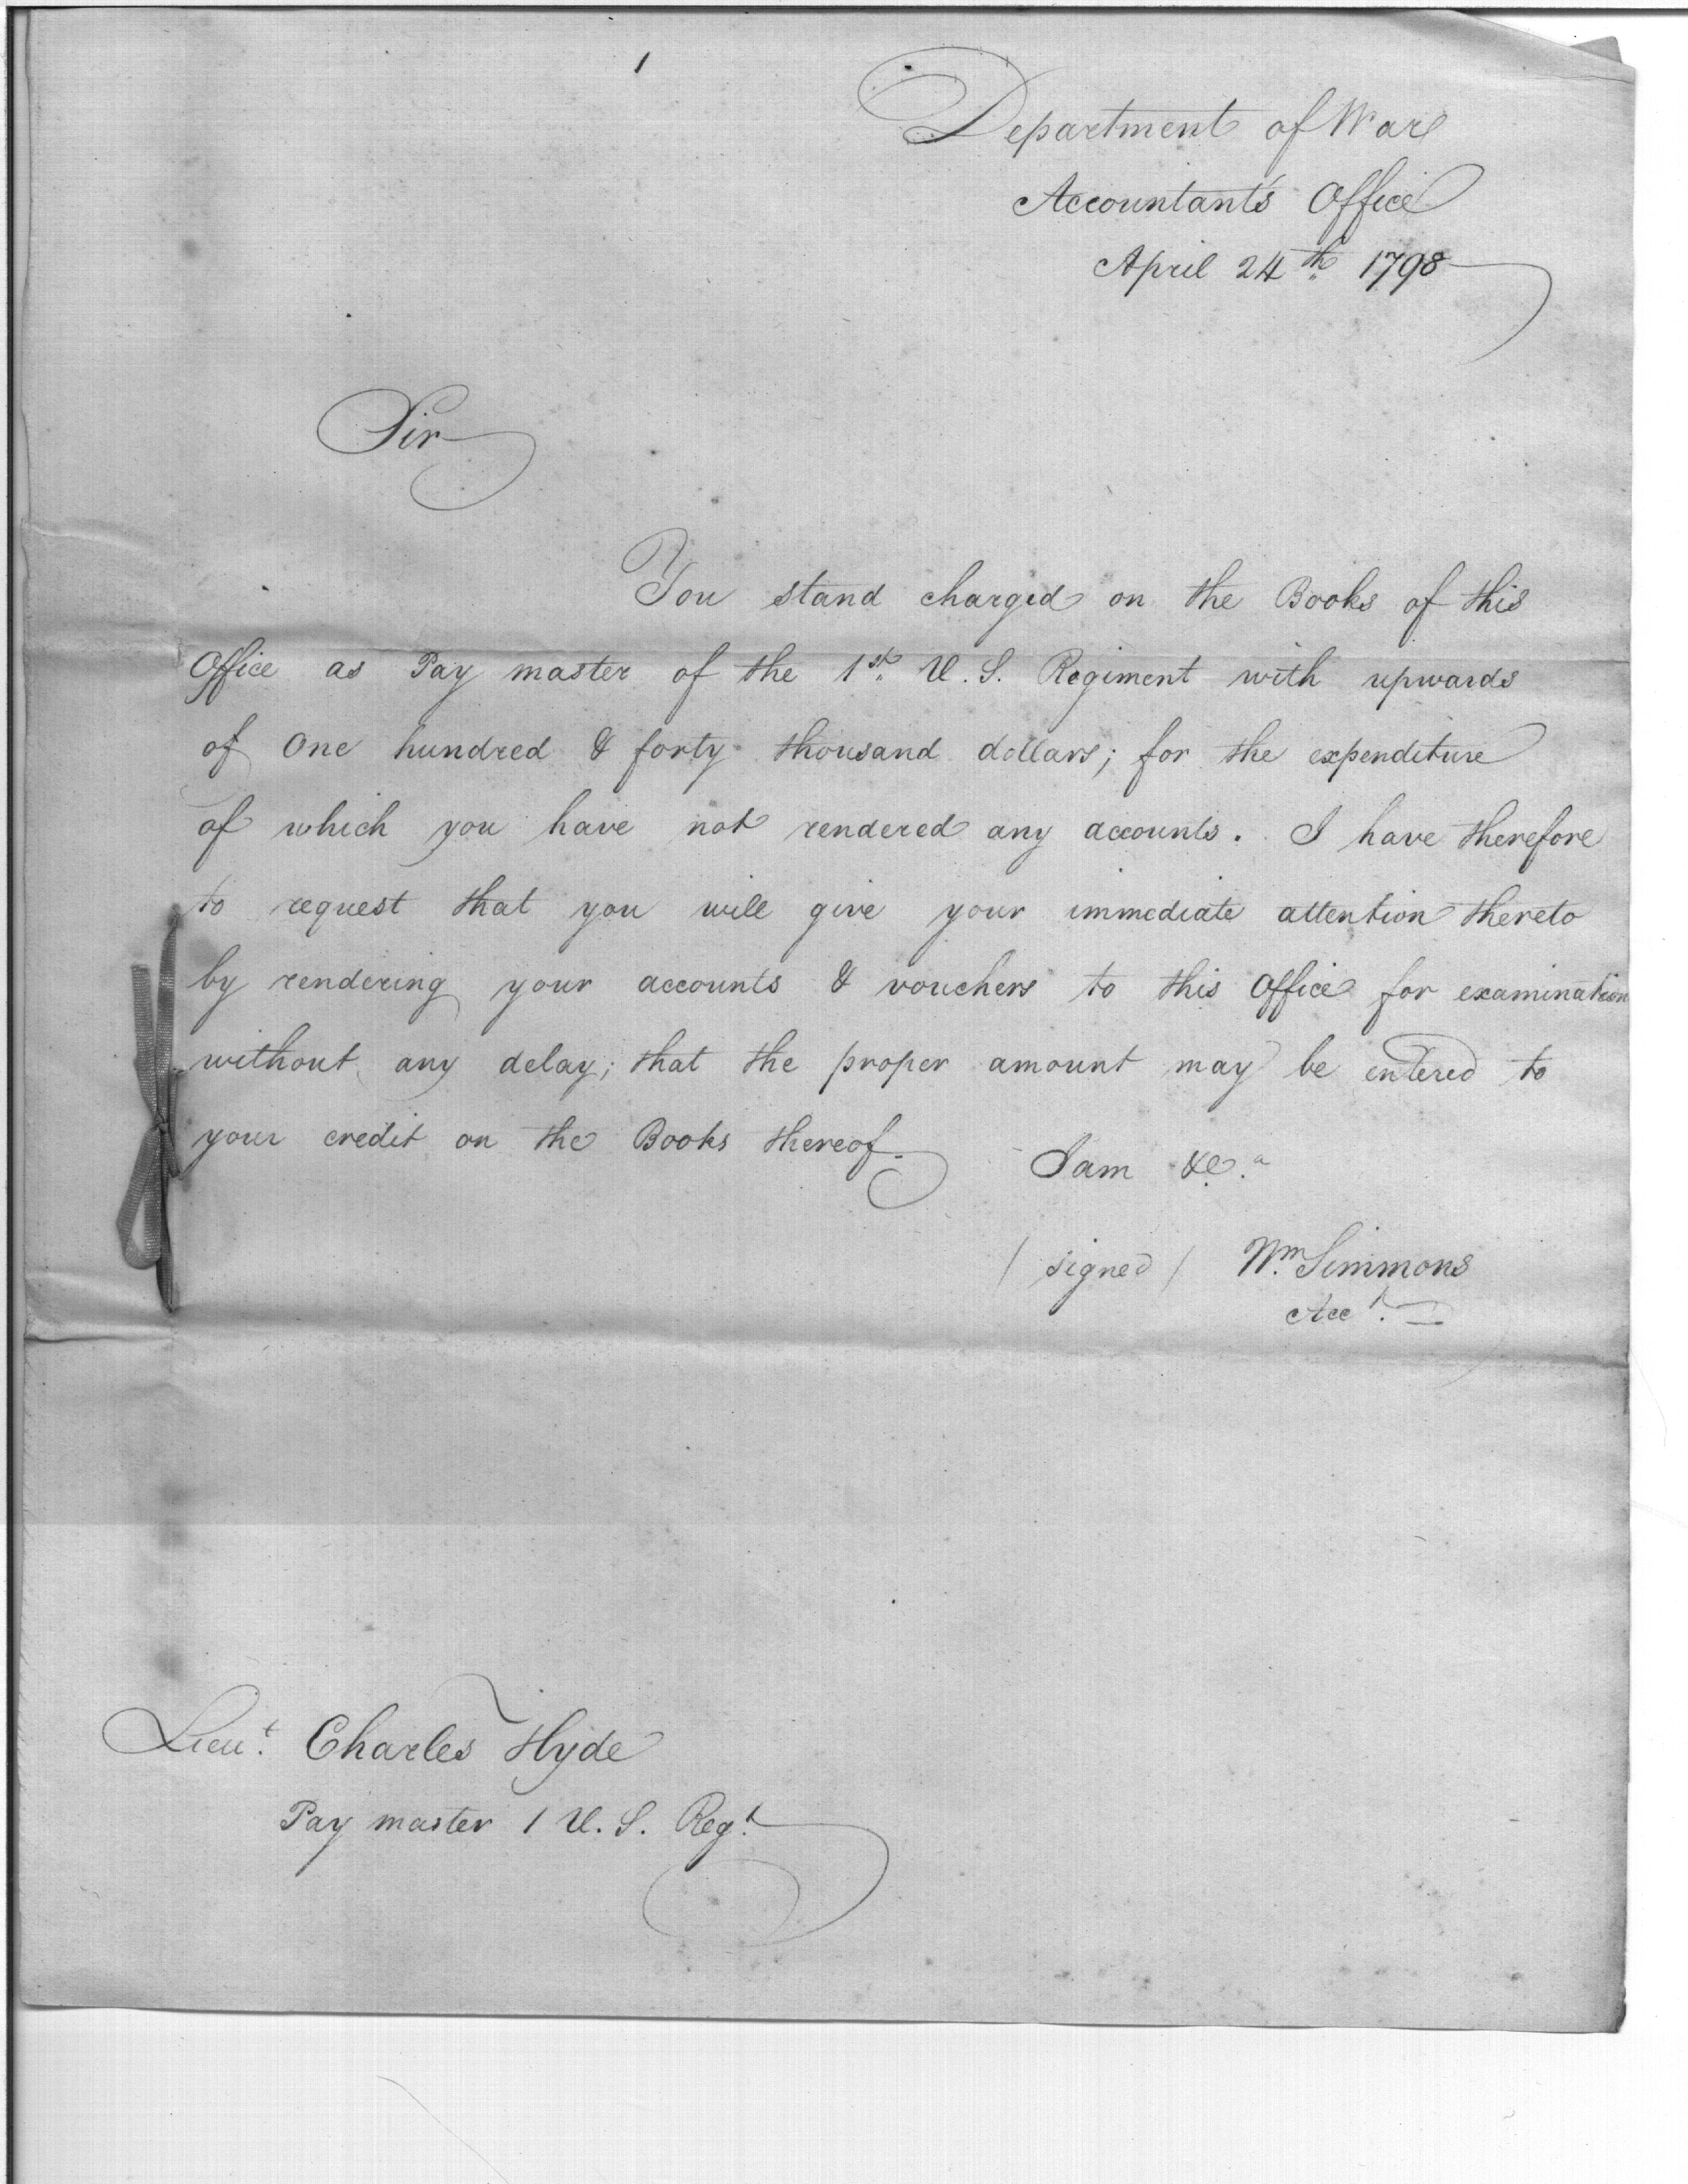 1
Department of War
Accountant's Office
April 24th 1798
Sir
You stand charged on the Books of this
Office as Pay master of the 1st U. S. Regiment with upwards
of One hundred & forty thousand dollars; for the expenditure
of which you have not rendered any accounts. I have therefore
to request that you will give your immediate attention thereto
by rendering your accounts & vouchers to this Office for examination
without any delay; that the proper amount may be entered to
your credit on the Books thereof.
I am &c.a
/ signed / Wm. Simmons
Acct.
Lieut. Charles Hyde
Pay master 1 U. S. Regt.